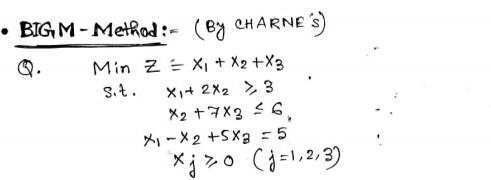 • BIG M - Method :- (By CHARNE'S)
Q. Min Z = x₁ + x₂ + x₃
S.t. x₁ + 2x₂ ≥ 3
x₂ + 7x₃ ≤ 6,
x₁ - x₂ + 5x₃ = 5
xj ≥ 0 (j=1,2,3)